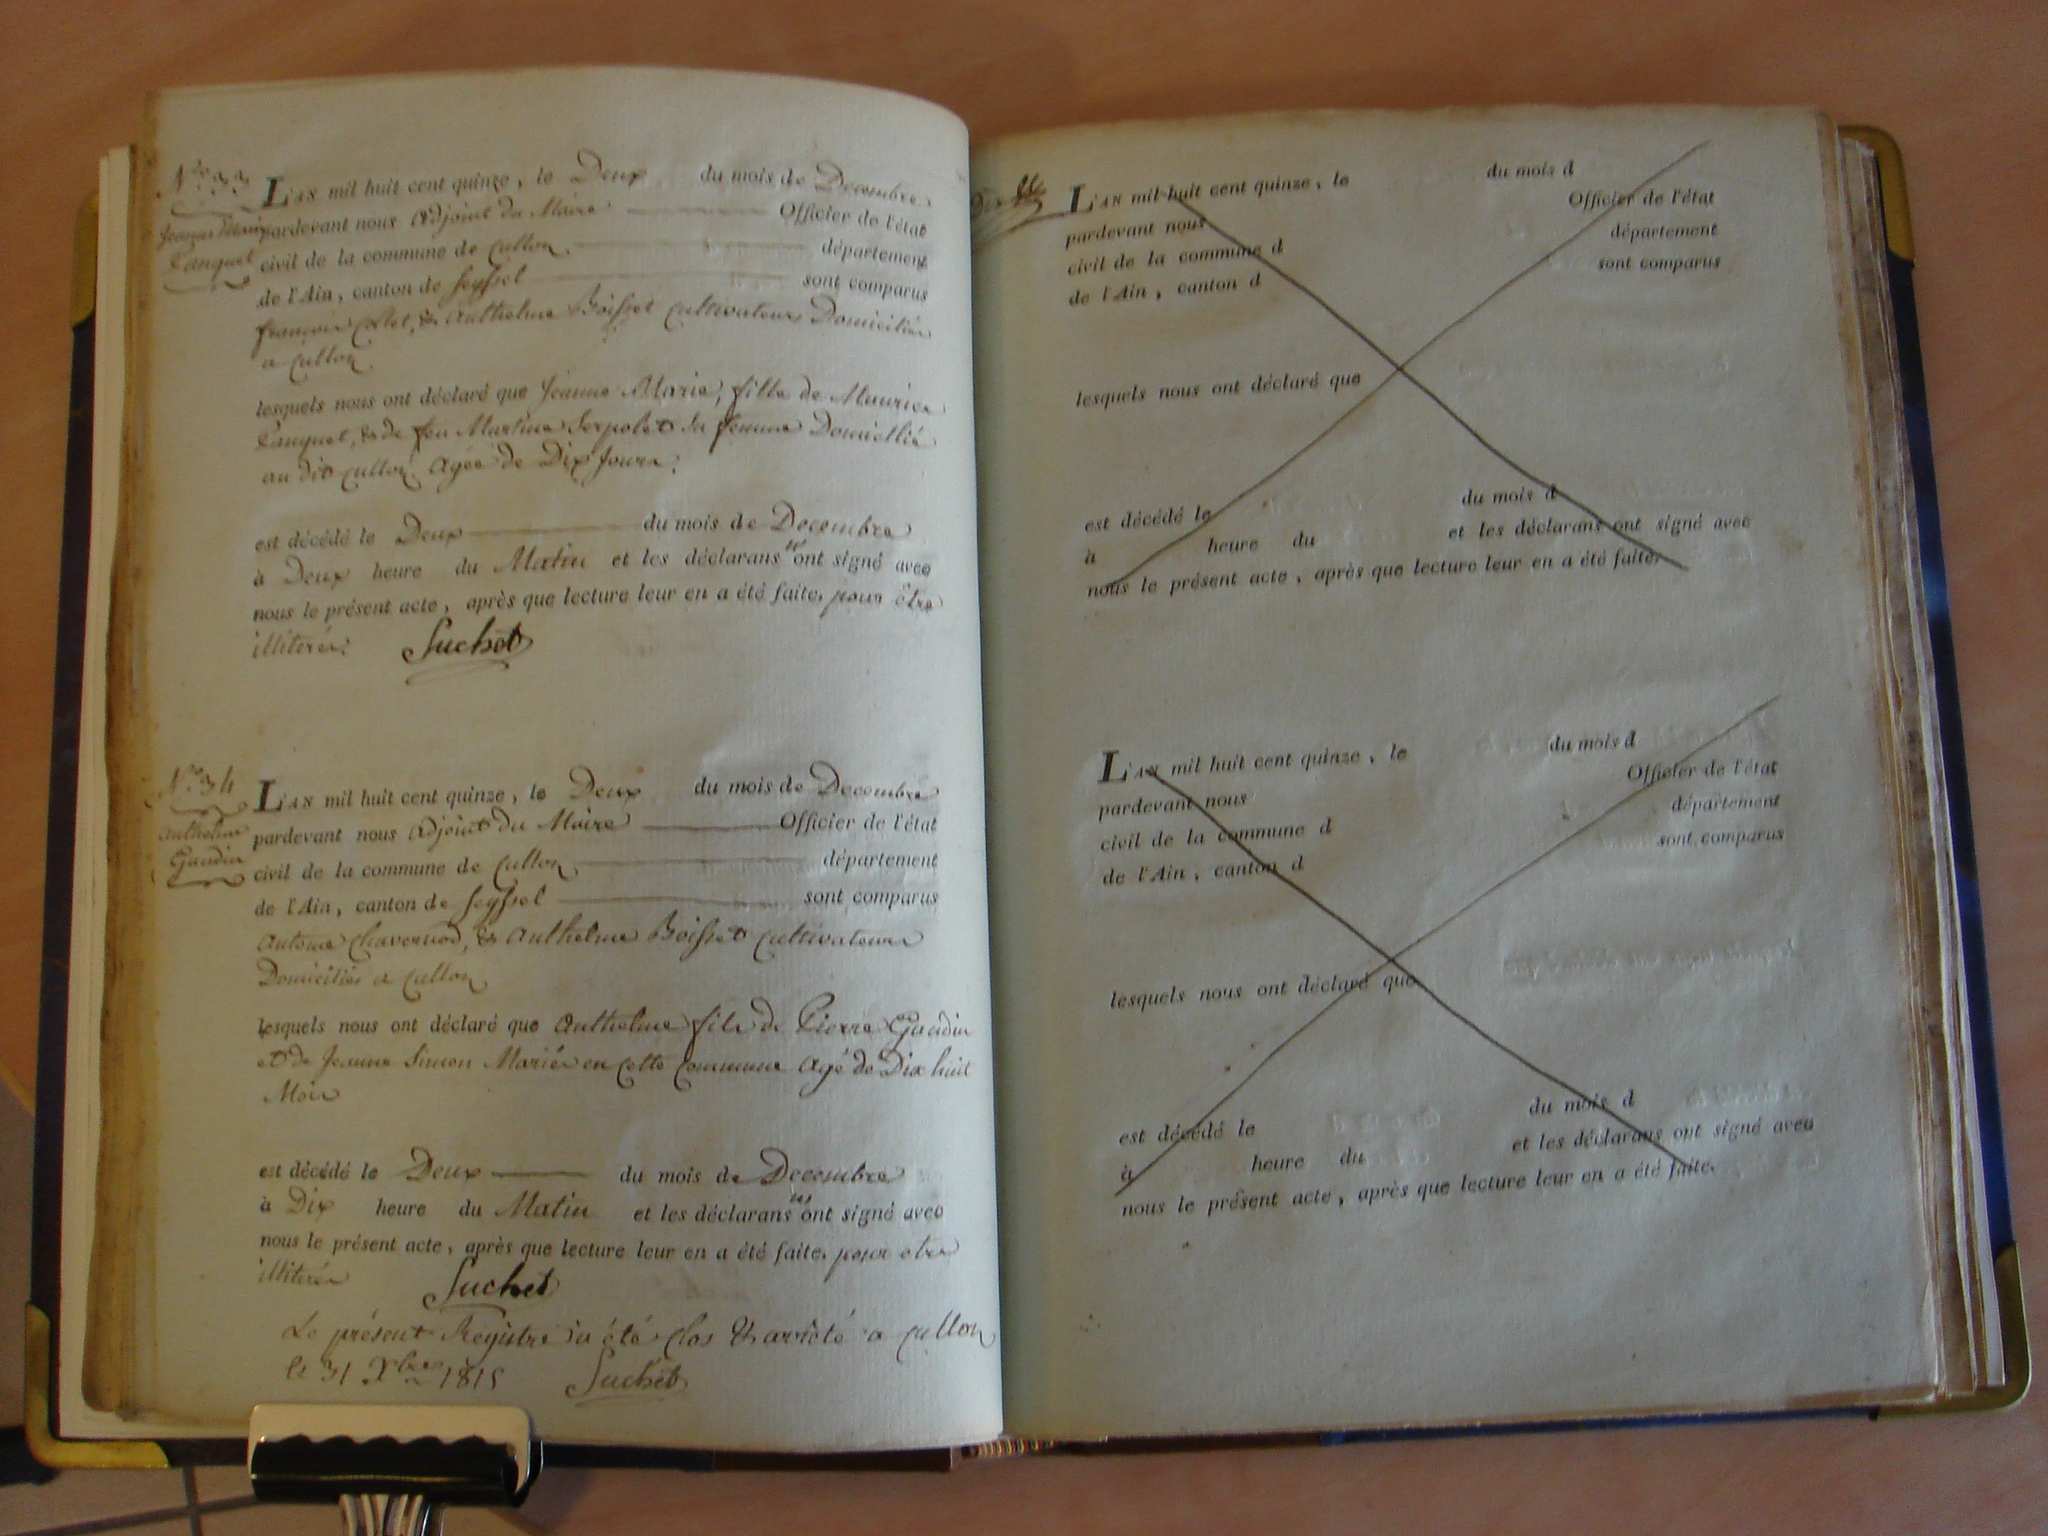 N.o 33
Jeanne Marie
Panquet
L'AN mil huit cent quinze, le Deux du mois de Decembre
pardevant nous adjoint du Maire Officier de l'état
civil de la commune de Cullon département
de l'Ain, canton de Seyssel sont comparus
françois & Anthelme Boisset cultivateurs Domiciliés
a Cullon
lesquels nous ont déclaré que Jeanne Marie, fille de Maurice
Panquet, & de feu Martine Serpolet sa femme Domiciliée
au dit Cullon Agée de Dix Jours;
est décédé le Deux du mois de Decembre
à Deux heure du Matin et les déclarans n'ont signé avec
nous le présent acte, après que lecture leur en a été faite. pour être
illiterés: Suchet
N.o 34
Anthelme
Gaudin
L'AN mil huit cent quinze, le Deux du mois de Decembre
pardevant nous adjoint du Maire Officier de l'état
civil de la commune de Cullon département
de l'Ain, canton de Seyssel sont comparus
Antoine Chavernod, & Anthelme Boisset cultivateurs
Domiciliés a Cullon
lesquels nous ont déclaré que Anthelme fils de Pierre Gaudin
et de Jeanne Simon Mariés en cette Commune Agé de Dix huit
Mois
est décédé le Deux du mois de Decembre
à Dix heure du Matin et les déclarans n'ont signé avec
nous le présent acte, après que lecture leur en a été faite. pour etre
illiterés Suchet
Le présent Registre a été Clos & arrêté a Cullon
le 31 Xbre 1815 Suchet
L'AN mil huit cent quinze, le du mois d
pardevant nous Officier de l'état
civil de la commune d département
de l'Ain, canton d sont comparus
lesquels nous ont déclaré que
est décédé le du mois d
à heure du et les déclarans ont signé avec
nous le présent acte, après que lecture leur en a été faite.
L'AN mil huit cent quinze, le du mois d
pardevant nous Officier de l'état
civil de la commune d département
de l'Ain, canton d sont comparus
lesquels nous ont déclaré que
est décédé le du mois d
à heure du et les déclarans ont signé avec
nous le présent acte, après que lecture leur en a été faite.